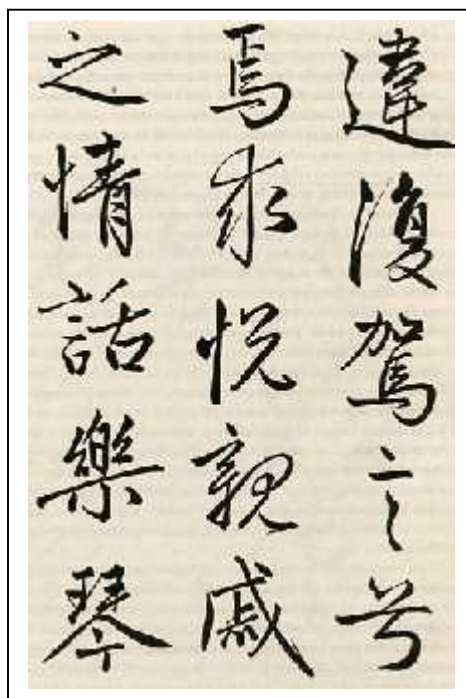 違復駕言兮
焉求悅親戚
之情話樂琴